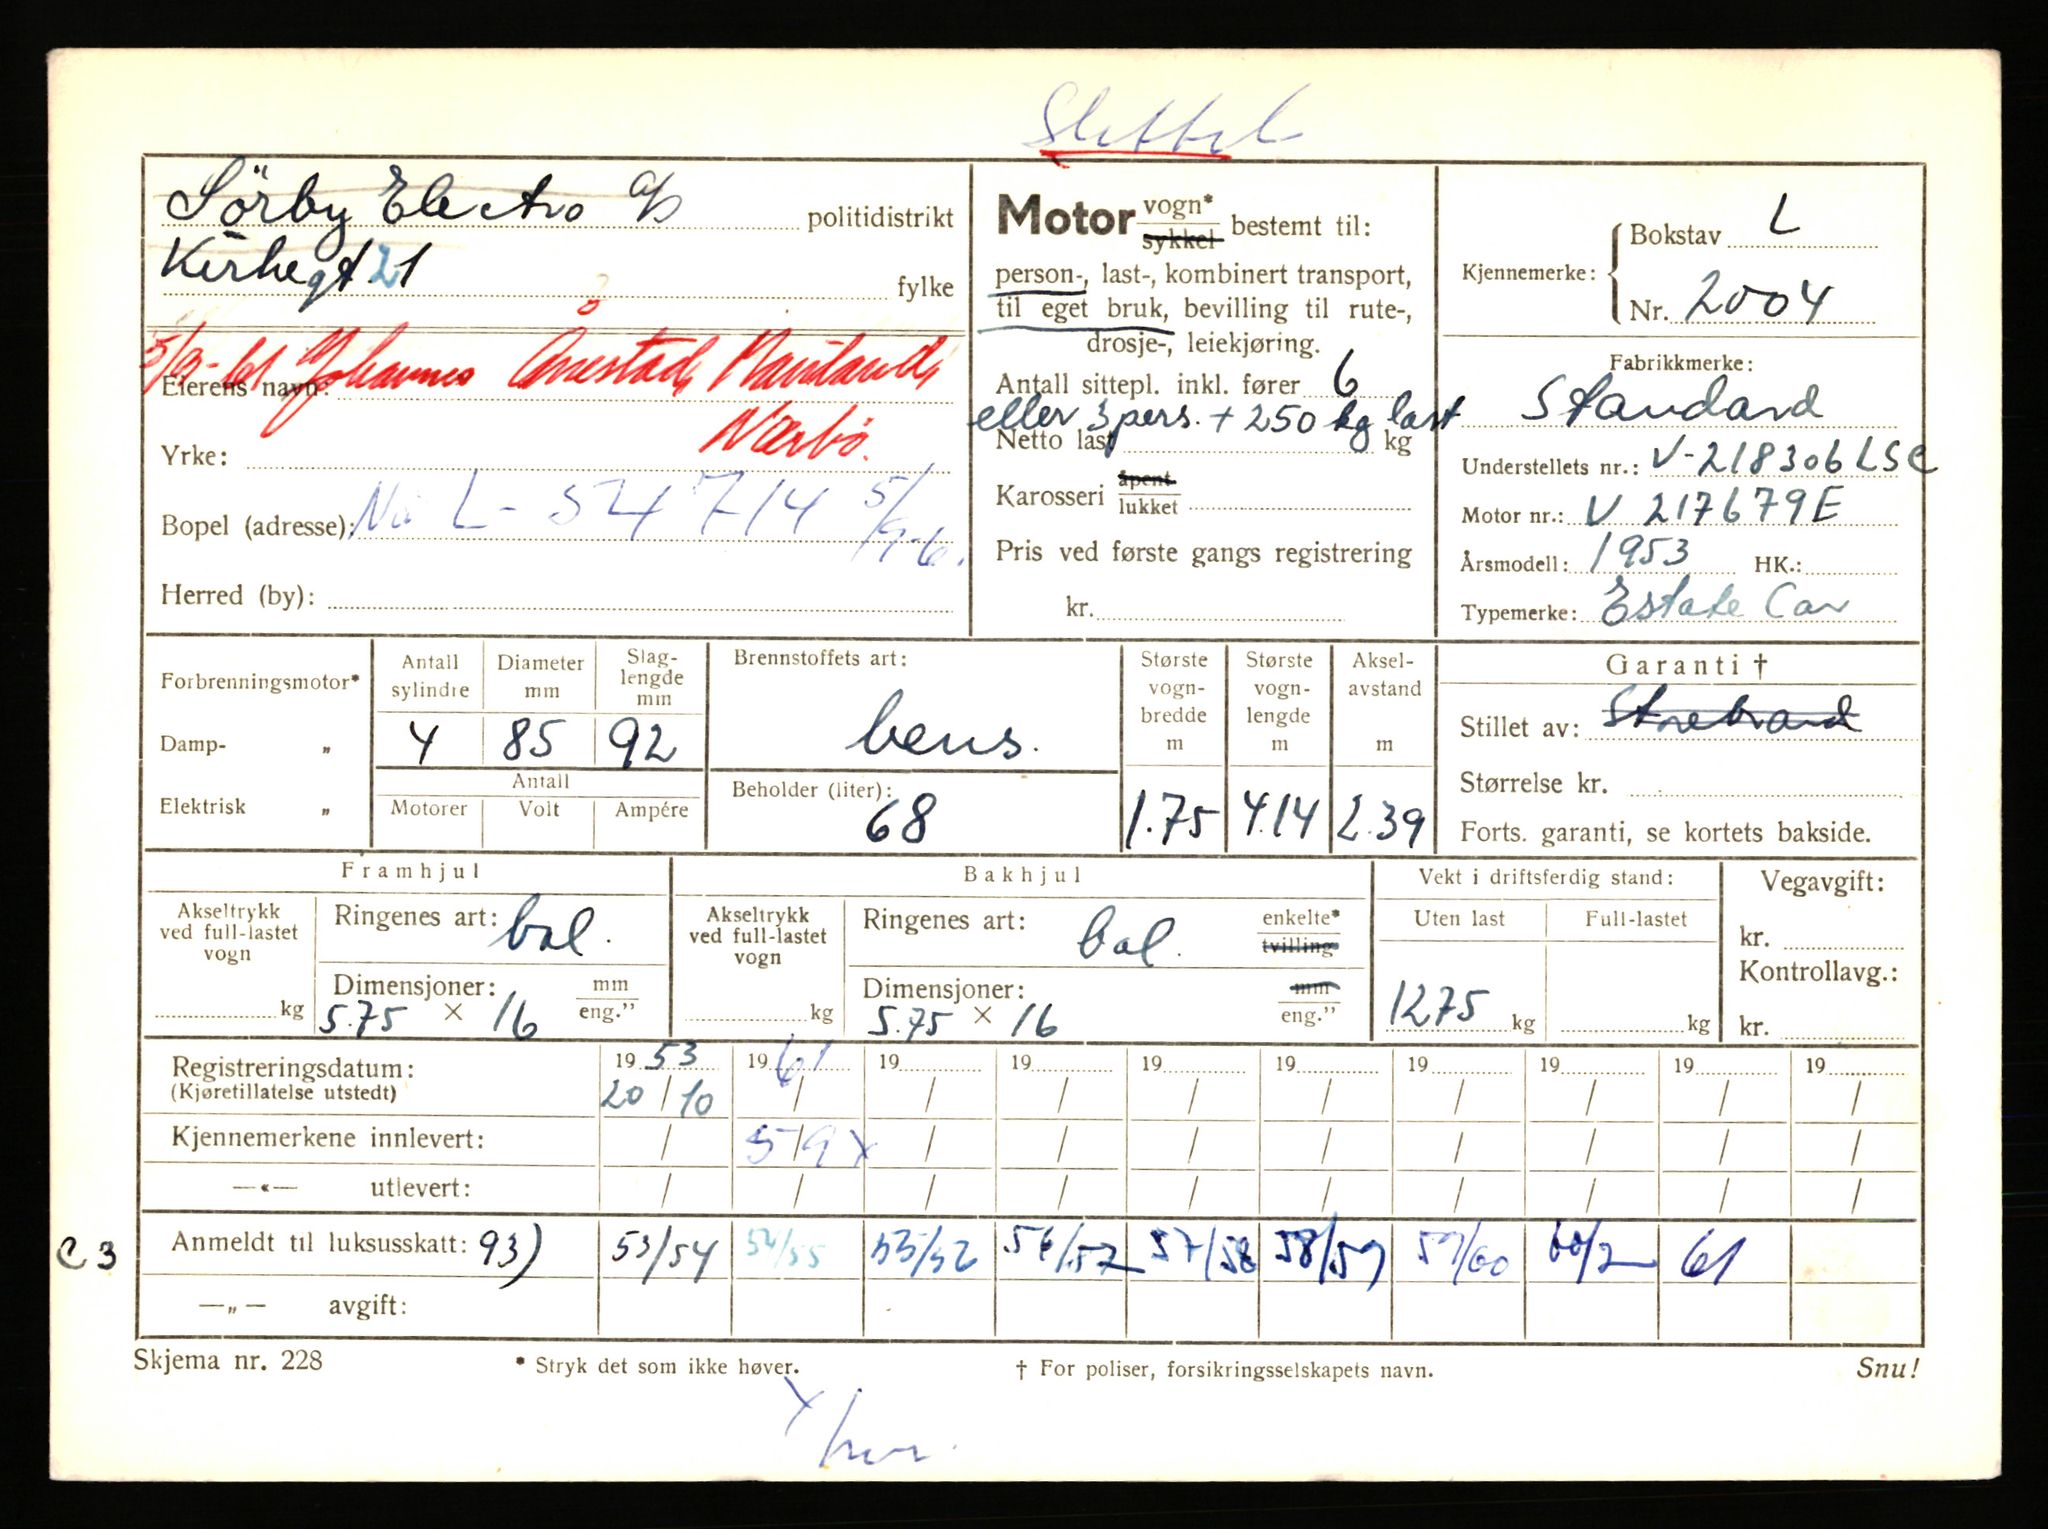 Slettet
Sörby Electro a/s politidistrikt
Kirkegt 21 fylke
5/9-61 Johannes Årrestad,
Eierens navn:
Nærbö.
Yrke:
Bopel (adresse): Nå L-54714 5/9-6.
Herred (by):
Motor vogn* sykkel bestemt til:
person-, last-, kombinert transport,
til eget bruk, bevilling til rute-,
drosje-, leiekjøring.
Antall sittepl. inkl. fører 6
eller 3 pers. + 250 kg last
Netto last kg
Karosseri åpent lukket
Pris ved første gangs registrering
kr.
Kjennemerke: Bokstav L
Nr. 2004
Fabrikkmerke:
Standard
Understellets nr.: V-218306 LSC
Motor nr.: V 217679E
Årsmodell: 1953 HK.:
Typemerke: Estate Car
Forbrenningsmotor*
Damp- „
Elektrisk „
Antall sylindre 4
Diameter mm 85
Slag-lengde mm 92
Antall
Motorer Volt Ampére
Brennstoffets art:
bens.
Beholder (liter):
68
Største vogn-bredde m 1.75
Største vogn-lengde m 4.14
Aksel-avstand m 2.39
Garanti †
Stillet av: Storebrand
Størrelse kr.
Forts. garanti, se kortets bakside.
Framhjul
Akseltrykk ved full-lastet vogn kg
Ringenes art: bal.
Dimensjoner: mm eng.”
5.75 × 16
Bakhjul
Akseltrykk ved full-lastet vogn kg
Ringenes art: bal. enkelte* tvilling
Dimensjoner: mm eng.”
5.75 × 16
Vekt i driftsferdig stand:
Uten last Full-lastet
1275 kg kg
Vegavgift:
kr.
Kontrollavg.:
kr.
Registreringsdatum: 1953 1961 19 19 19 19 19 19 19 19
(Kjøretillatelse utstedt) 20/10 / / / / / / / / /
Kjennemerkene innlevert: / 5/9 x / / / / / / / /
—«— utlevert: / / / / / / / / / /
C 3 Anmeldt til luksusskatt: 93) 53/54 54/55 55/56 56/57 57/58 58/59 59/60 60/2 61
—„— avgift:
Skjema nr. 228 * Stryk det som ikke høver. † For poliser, forsikringsselskapets navn. Snu!